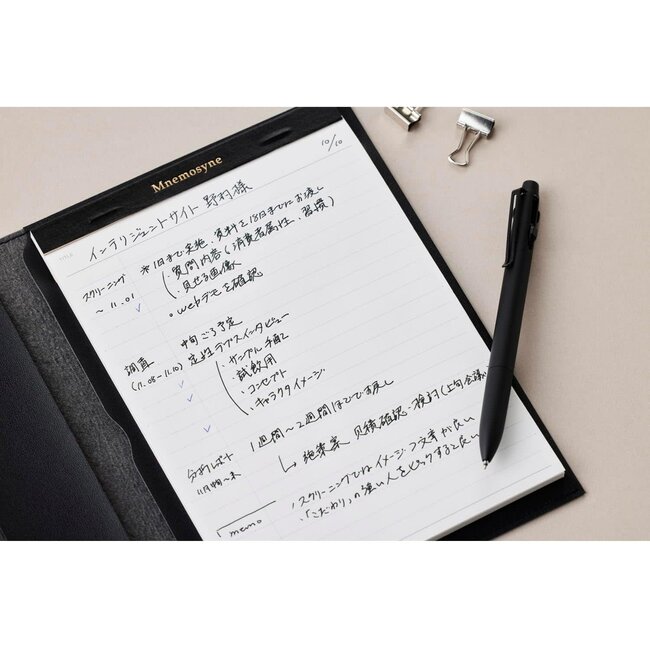 Mnemosyne
10/10
TITLE
インテリジェントサイト 野村様
スクリーニング
~11.01
1日まで実施、資料を18日までにお渡し
・質問内容(消費者属性、習慣)
・見せる画像
・webデモを確認
調査
(11.08-11.10)
中旬ごろ予定
定性 デプスインタビュー
・サンプル手配
・試飲用
・コンセプト
・キャラクタイメージ
分析レポート
11月中旬~末
1週間~2週間ほどでお戻し
↳ 施策案 見積確認・検討(上旬会議
memo
スクリーニングではイメージつく文章が良い
・「こだわり」の強い人をピックすると良い